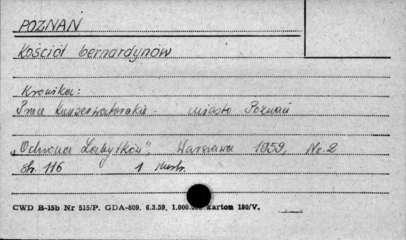 POZNAŃ
Kościół bernardynów
Kronika:
Prace konserwatorskie - miasto Poznań
"Ochrona Zabytków" Warszawa 1959, Nr. 2
str. 116 1 ilustr.
CWD B-15b Nr 515/P. GDA-809. 6.3.59. 1.000.000 kartom 180/V.